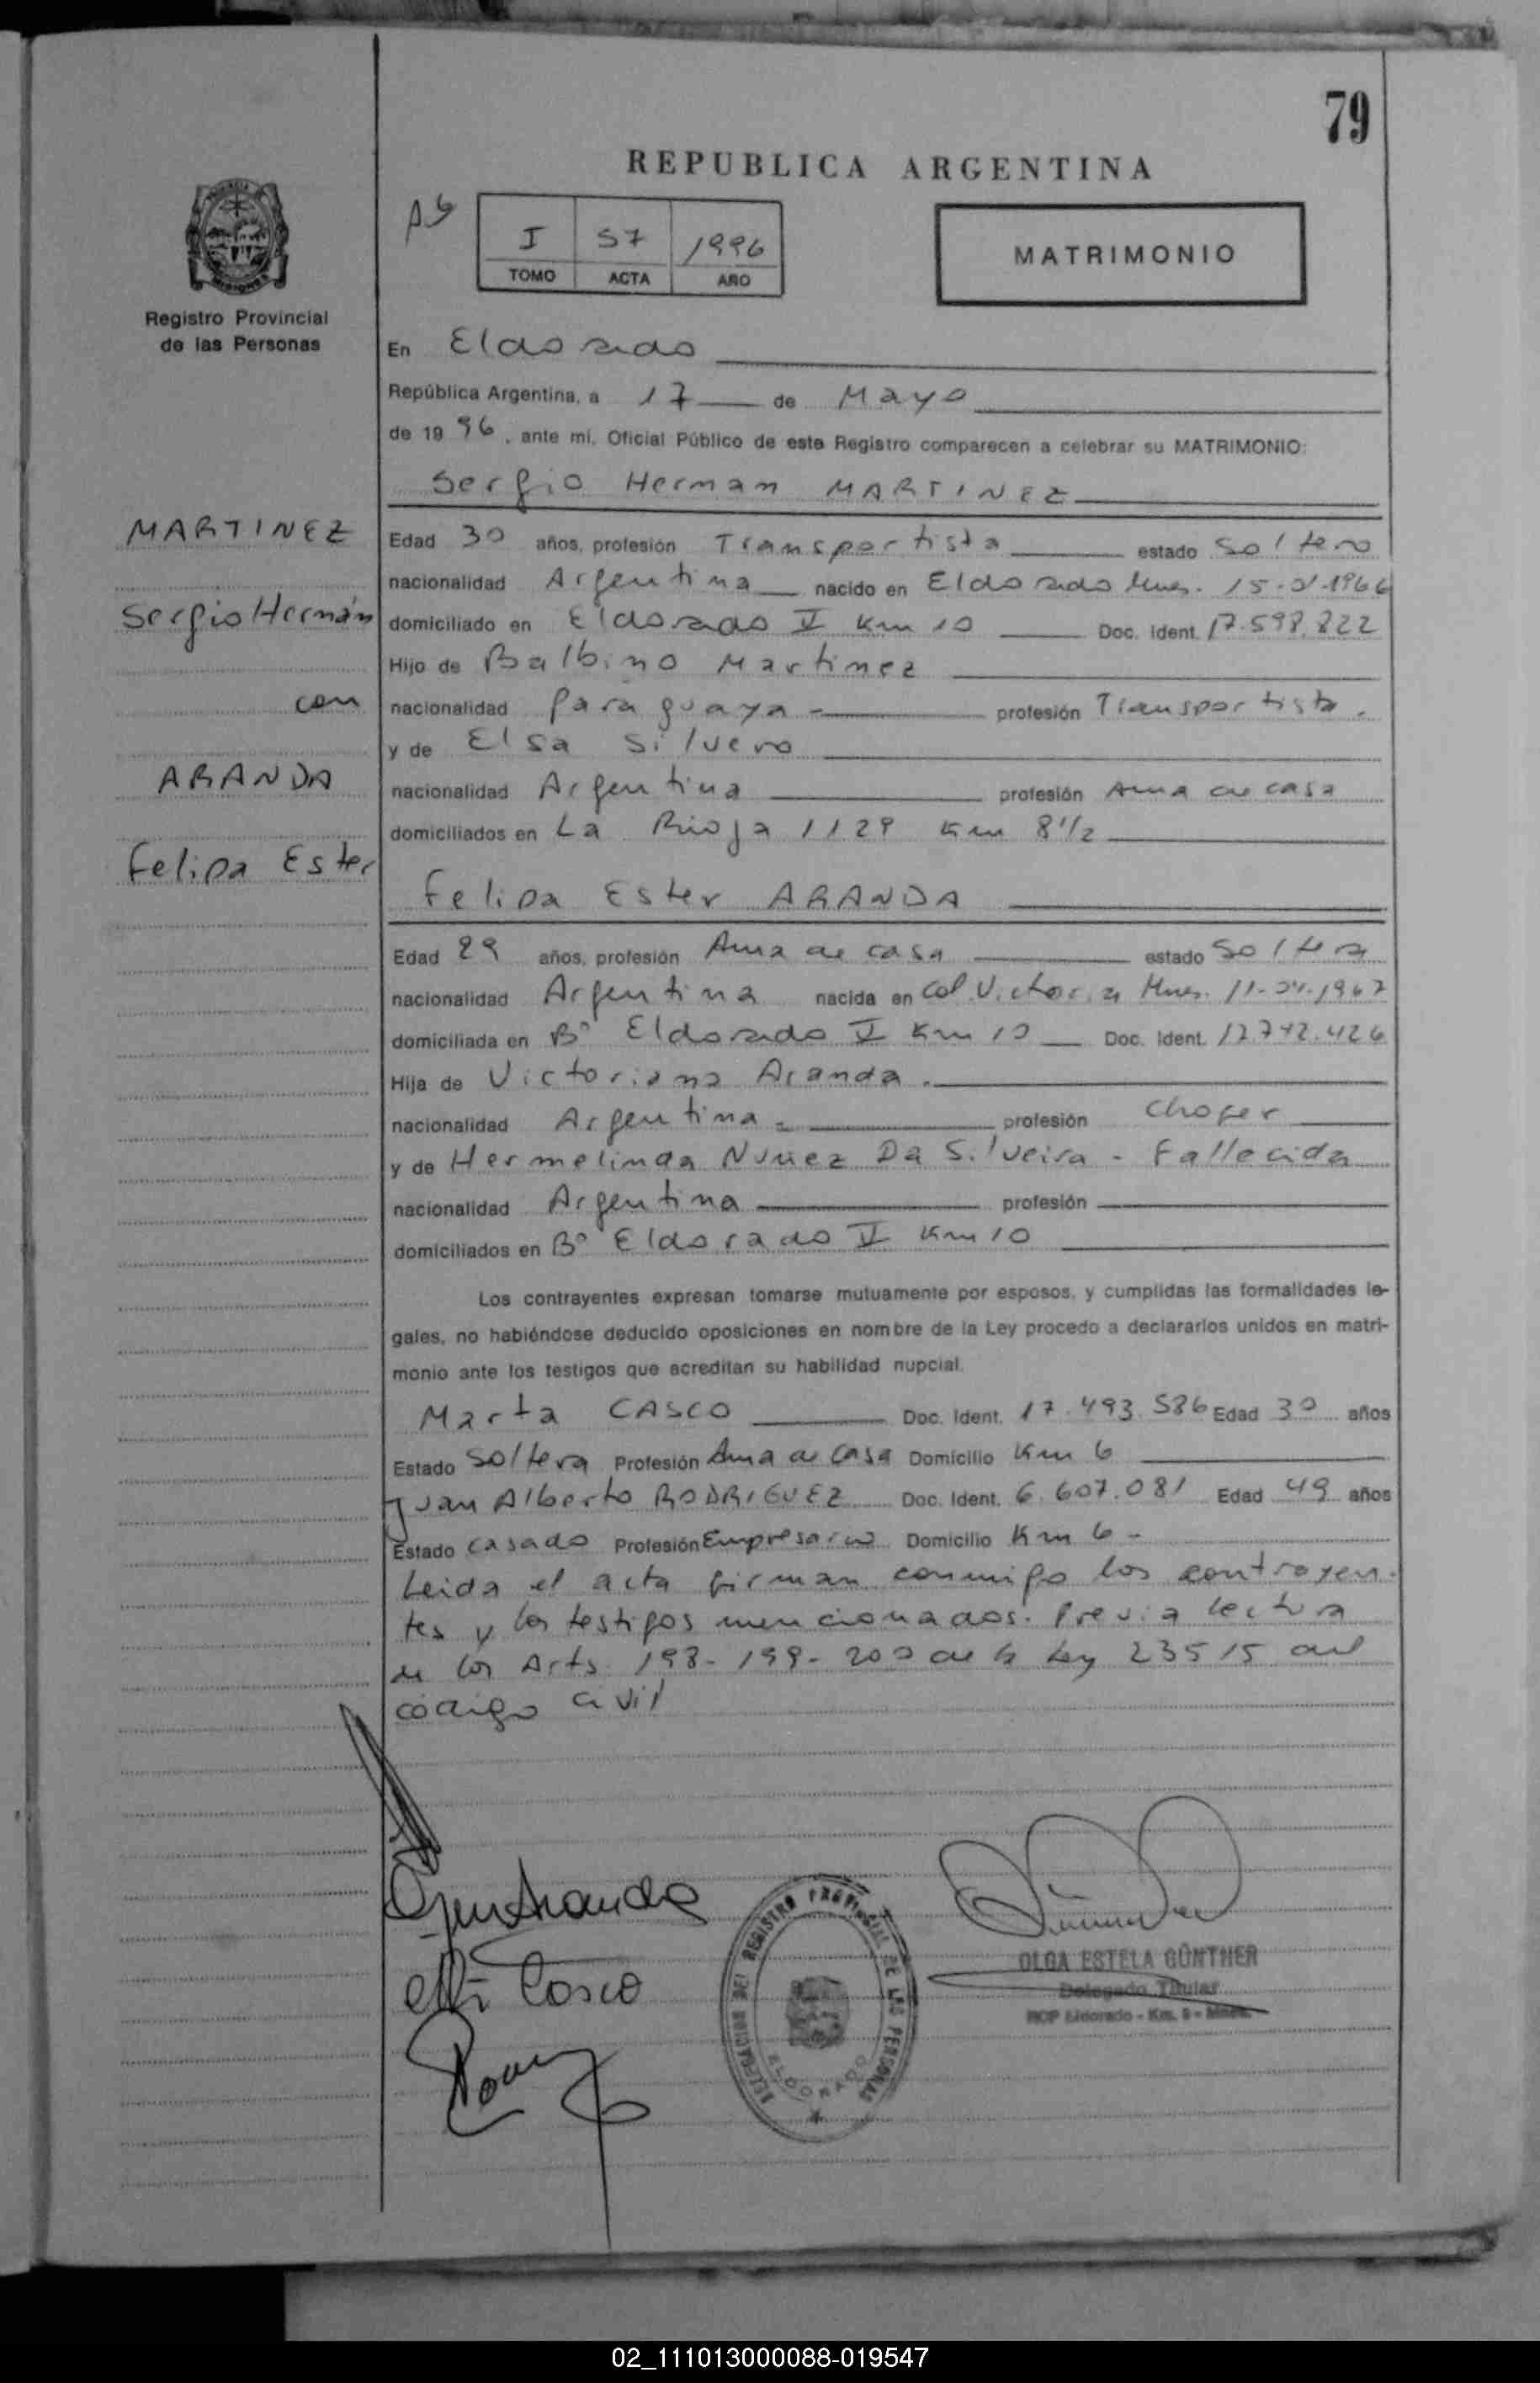 79
REPUBLICA ARGENTINA
I 57 1996
TOMO ACTA AÑO
MATRIMONIO
Registro Provincial
de las Personas
En Eldorado
República Argentina, a 17 de Mayo
de 1996, ante mi, Oficial Público de este Registro comparecen a celebrar su MATRIMONIO:
Sergio Hernan MARTINEZ
MARTINEZ
Sergio Hernán
con
ARANDA
Felipa Ester
Edad 30 años, profesión Transportista estado soltero
nacionalidad Argentina nacido en Eldorado Mnes. 15-01-1966
domiciliado en Eldorado II Km 10 Doc. Ident. 17.598.822
Hijo de Balbino Martinez
nacionalidad Paraguaya - profesión Transportista.
y de Elsa Silvero
nacionalidad Argentina profesión Ama de casa
domiciliados en La Rioja 1129 Km 8 1/2
Felipa Ester ARANDA
Edad 29 años, profesión Ama de casa estado Soltera
nacionalidad Argentina nacida en Col. Victoria Mnes. 11-04-1967
domiciliada en B° Eldorado II Km 10 Doc. Ident.
Hija de Victoriano Aranda.
nacionalidad Argentina profesión Chofer
y de Hermelinda Nuñez Da Silveira - Fallecida
nacionalidad Argentina profesión
domiciliados en B° Eldorado II Km 10
Los contrayentes expresan tomarse mutuamente por esposos, y cumplidas las formalidades le-
gales, no habiéndose deducido oposiciones en nombre de la Ley procedo a declararlos unidos en matri-
monio ante los testigos que acreditan su habilidad nupcial.
Marta CASCO Doc. Ident. 17.493.586 Edad 30 años
Estado Soltera Profesión Ama de Casa Domicilio Km 6
Juan Alberto RODRIGUEZ Doc. Ident. 6.607.081 Edad 49 años
Estado Casado Profesión Empresario Domicilio Km 6 -
Leida el acta firman conmigo los contrayen-
tes y los testigos mencionados. Previa lectura
de los Arts. 198-199-200 de la Ley 23515 del
código civil
Aranda
Casco
DELEGACION DEL REGISTRO PROVINCIAL DE LAS PERSONAS
ELDORADO
OLGA ESTELA GÜNTHER
Delegado Titular
RCP Eldorado - Km. 9 - Mnes.
02_111013000088-019547